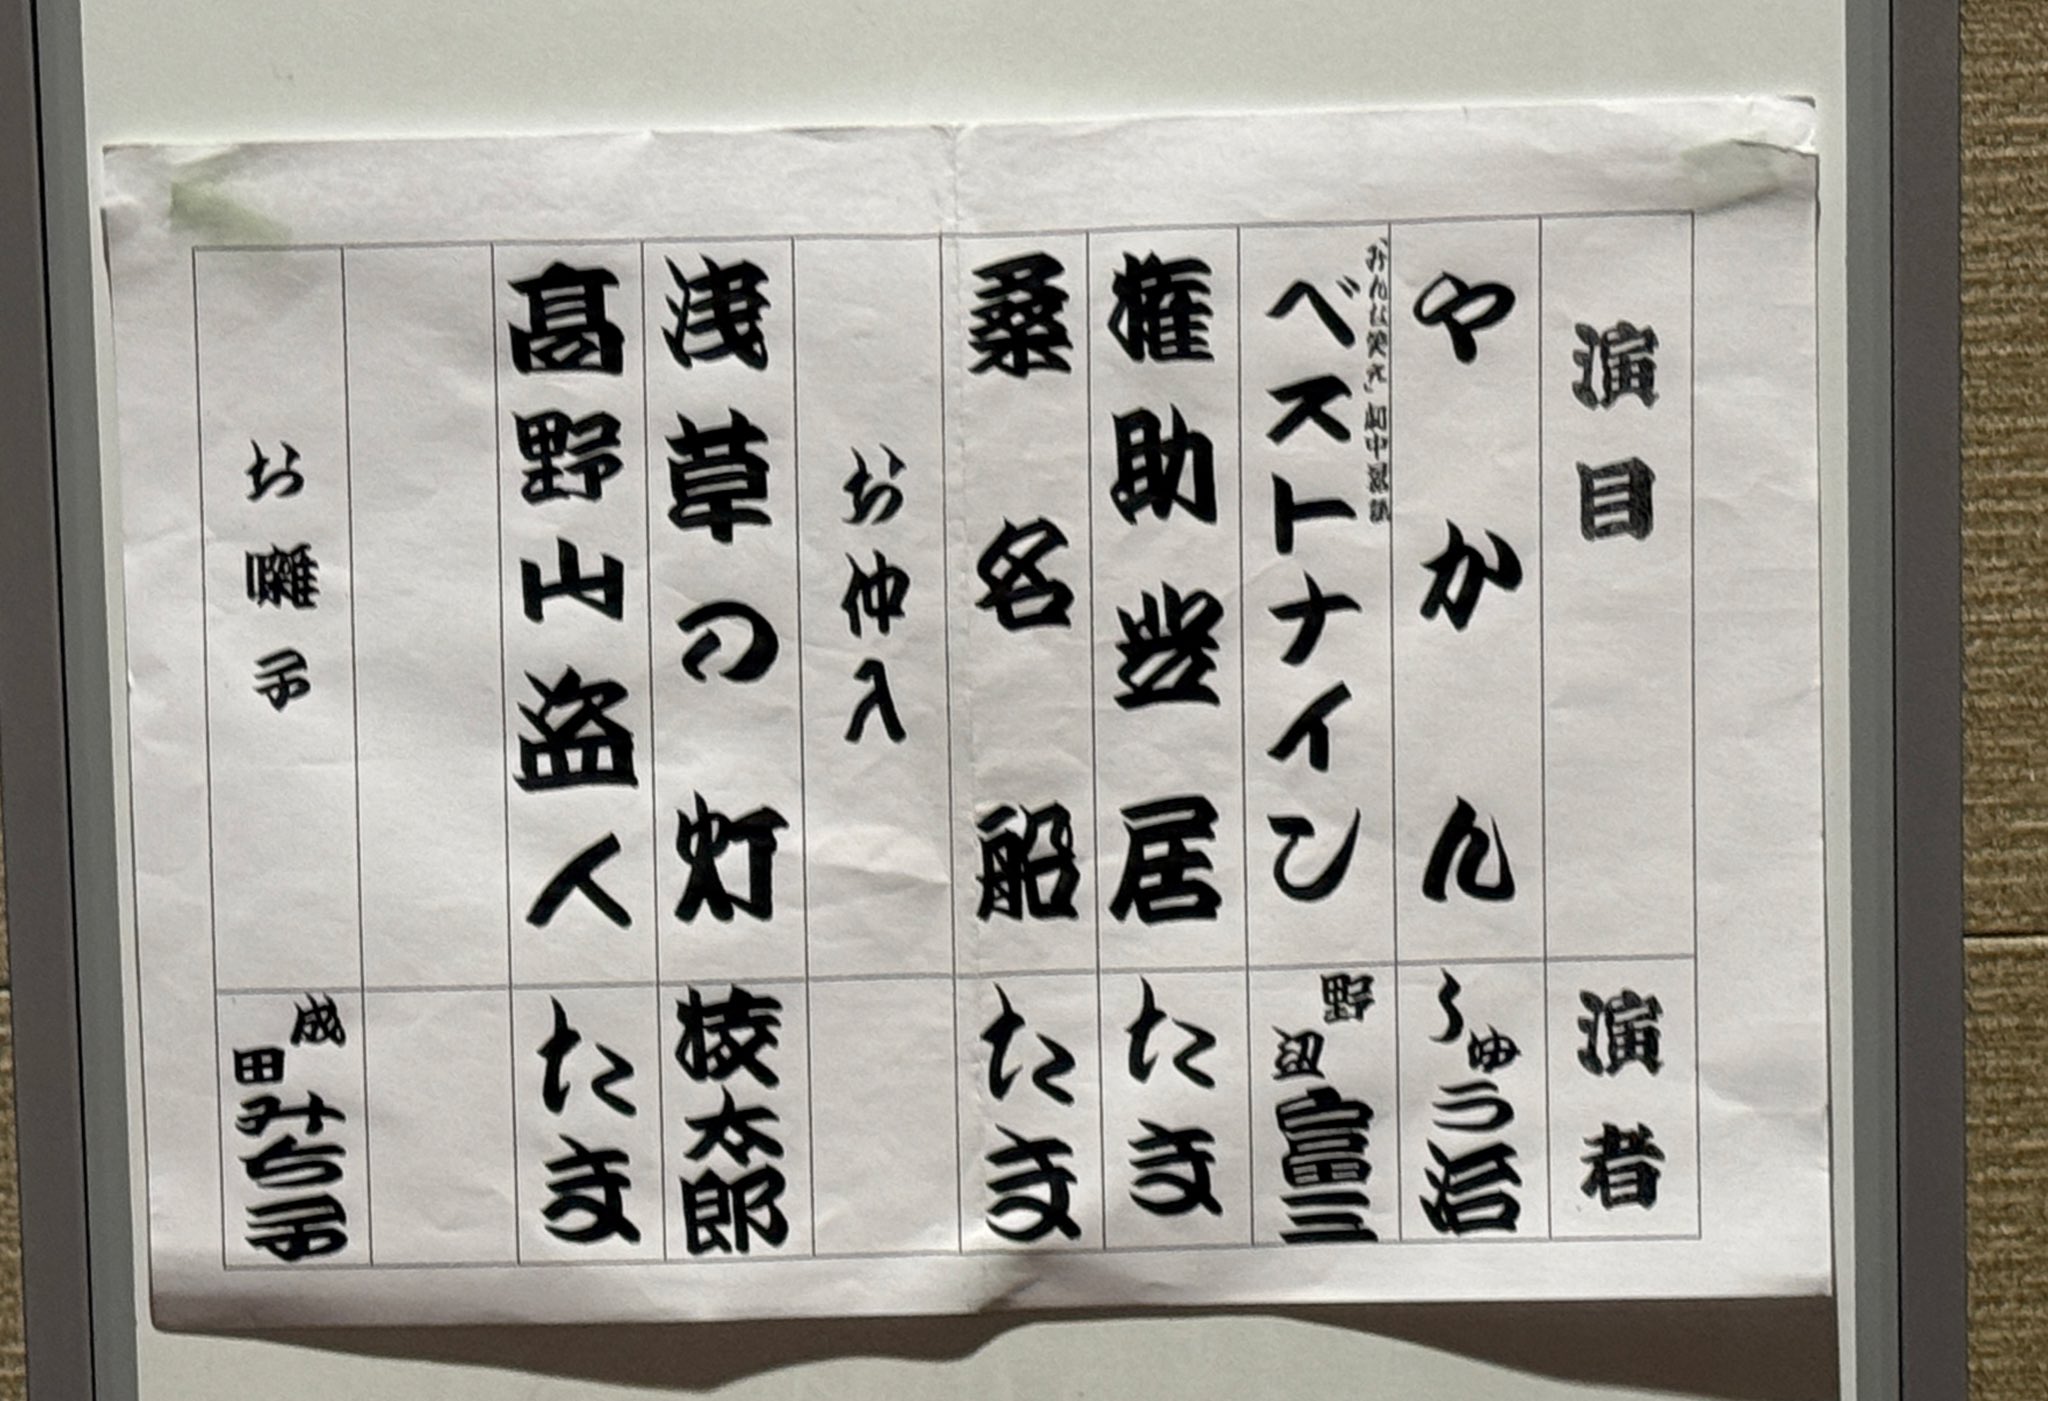 演目 演者
やかん しゅう治
劇中落語
ベストナイン 野辺富三
権助芝居 たま
桑名船 たま
お仲入
浅草の灯 枝太郎
高野山盗人 たま
お囃子 成田みち子